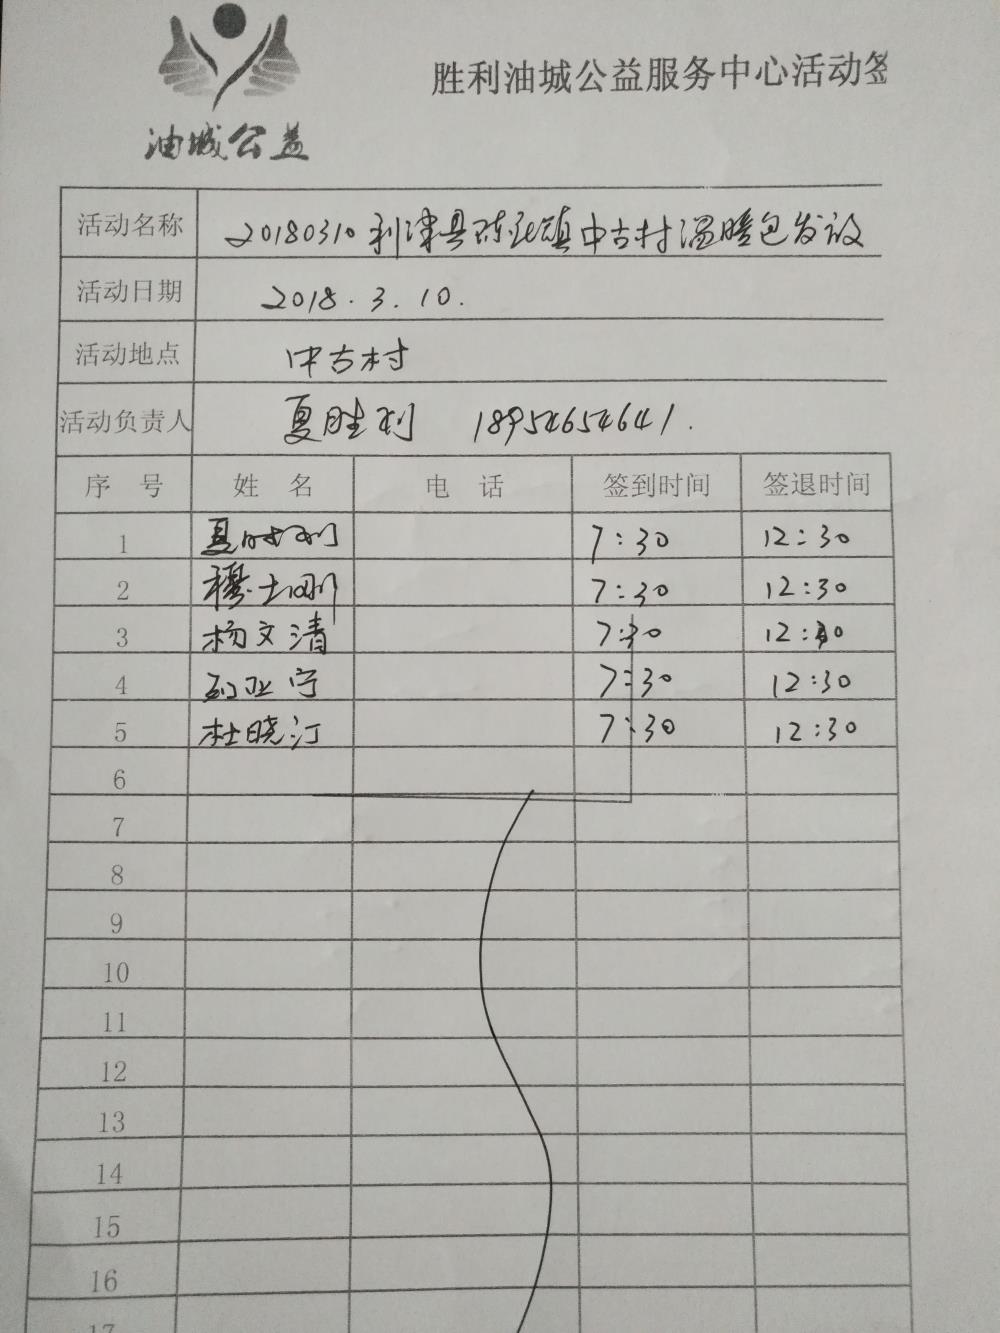 油城公益
胜利油城公益服务中心活动签
活动名称 20180310利津县陈庄镇中古村温暖包发放
活动日期 2018.3.10.
活动地点 中古村
活动负责人 夏胜利 18954654641.
序 号 姓 名 电 话 签到时间 签退时间
1 夏胜利 7:30 12:30
2 穆士刚 7:30 12:30
3 杨文清 7:30 12:30
4 亚宁 7:30 12:30
5 杜晓汀 7:30 12:30
6
7
8
9
10
11
12
13
14
15
16
17